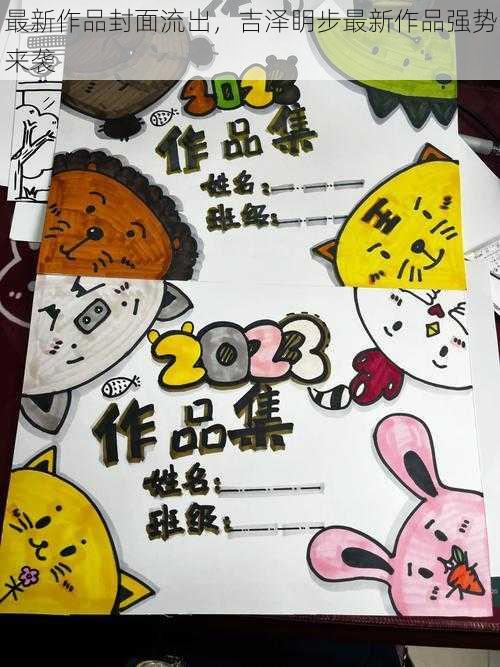 最新作品封面流出，吉泽明步最新作品强势
来袭
2023
作品集
姓名:
班级:
2023
作品集
姓名:
班级: